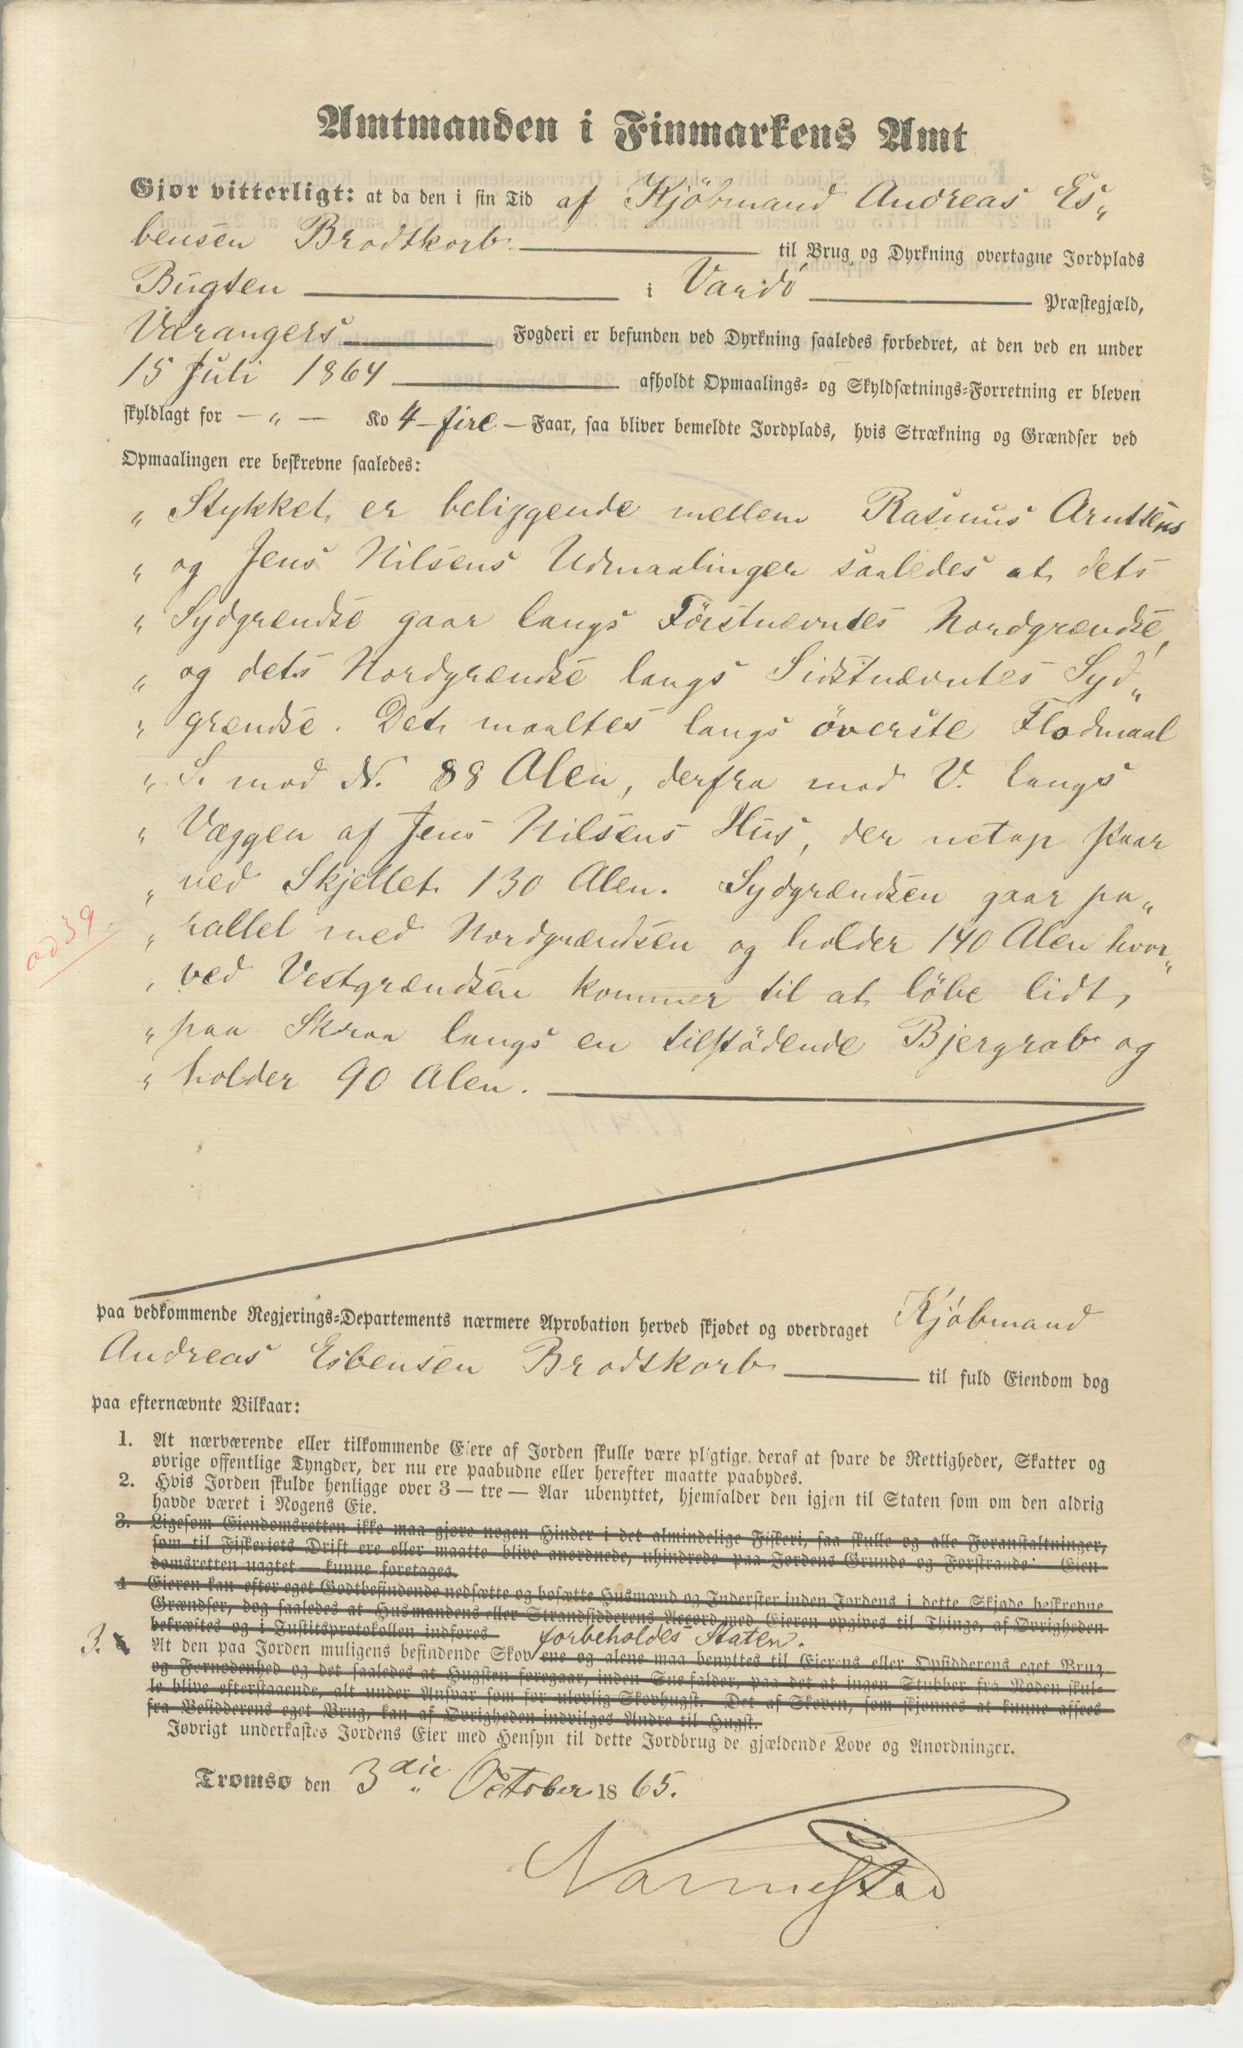 Amtmanden i Finmarkens Amt
Gjør vitterligt: at da den i sin Tid af Kjöbmand Andreas Es„
bensen Brodtkorb til Brug og Dyrkning overtagne Jordplads
Bugten i Vardö Præstegjæld,
Varangers Fogderi er befunden ved Dyrkning saaledes forbedret, at den ved en under
15 Juli 1864 afholdt Opmaalings- og Skyldsætnings-Forretning er bleven
skyldlagt for — „ — Ko 4 - fire - Faar, saa bliver bemeldte Jordplads, hvis Strækning og Grændser ved
Opmaalingen ere beskrevne saaledes:
„ Stykket er beliggende mellem Rasmus Arntsens
„ og Jens Nilsens Udmaalinger saaledes at dets
„ Sydgrændse gaar langs Førstnævntes Nordgrændse,
„ og dets Nordgrændse langs Sidstnævntes Syd„
„ grændse. Det maaltes langs överste Flodmaal
„ S. mod N. 88 Alen, derfra mod V. langs
„ Væggen af Jens Nilsens Hus, der netop staar
„ ved Skjellet 130 Alen. Sydgrændsen gaar pa„
„ rallel med Nordgrændsen og holder 140 Alen hvor„
„ ved Vestgrændsen kommer til at löbe lidt
„ paa Skraa langs en tilstödende Bjergrab og
„ holder 90 Alen.
od 39.
paa vedkommende Regjerings-Departements nærmere Aprobation herved skjødet og overdraget Kjöbmand
Andreas Esbensen Brodskorb til fuld Eiendom dog
paa efternævnte Vilkaar:
1. At nærværende eller tilkommende Eiere af Jorden skulle være pligtige deraf at svare de Rettigheder, Skatter og
øvrige offentlige Tyngder, der nu ere paabudne eller herefter maatte paabydes.
2. Hvis Jorden skulde henligge over 3 — tre — Aar ubenyttet, hjemfalder den igjen til Staten som om den aldrig
havde været i Nogens Eie.
3. Ligesom Eiendomsretten ikke maa gjøre nogen Hinder i det almindelige Fiskeri, saa skulle og alle Foranstaltninger,
som til Fiskeriets Drift ere eller maatte blive anordnede, uhindrede paa Jordens Grunde og Forstrande — Eien
domsretten uagtet — kunne foretages.
4 Eieren kan efter eget Godtbefindende nedsætte og bosætte Husmænd og Inderster inden Jordens i dette Skjøde beskrevne
Grændser, dog saaledes at Husmandens eller Strandsidderens Accord med Eieren opgives til Thinge, af Øvrigheden
bekræftes og i Justitsprotokollen indføres forbeholdes Staten.
3. At den paa Jorden muligens befindende Skov ene og alene maa benyttes til Eierens eller Opsidderens eget Brug
og Fornødenhed og det saaledes at Hugsten foregaar, inden Sne falder, paa det at ingen Stubber fra Roden skul-
le blive efterstaaende, alt under Ansvar som for ulovlig Skovhugst. Det af Skoven, som skjønnes at kunne afsees
fra Besidderens eget Brug, kan af Øvrigheden indvilges Andre til Hugst.
Jøvrigt underkastes Jordens Eier med Hensyn til dette Jordbrug de gjældende Love og Anordninger.
Tromsø den 3die October 1865.